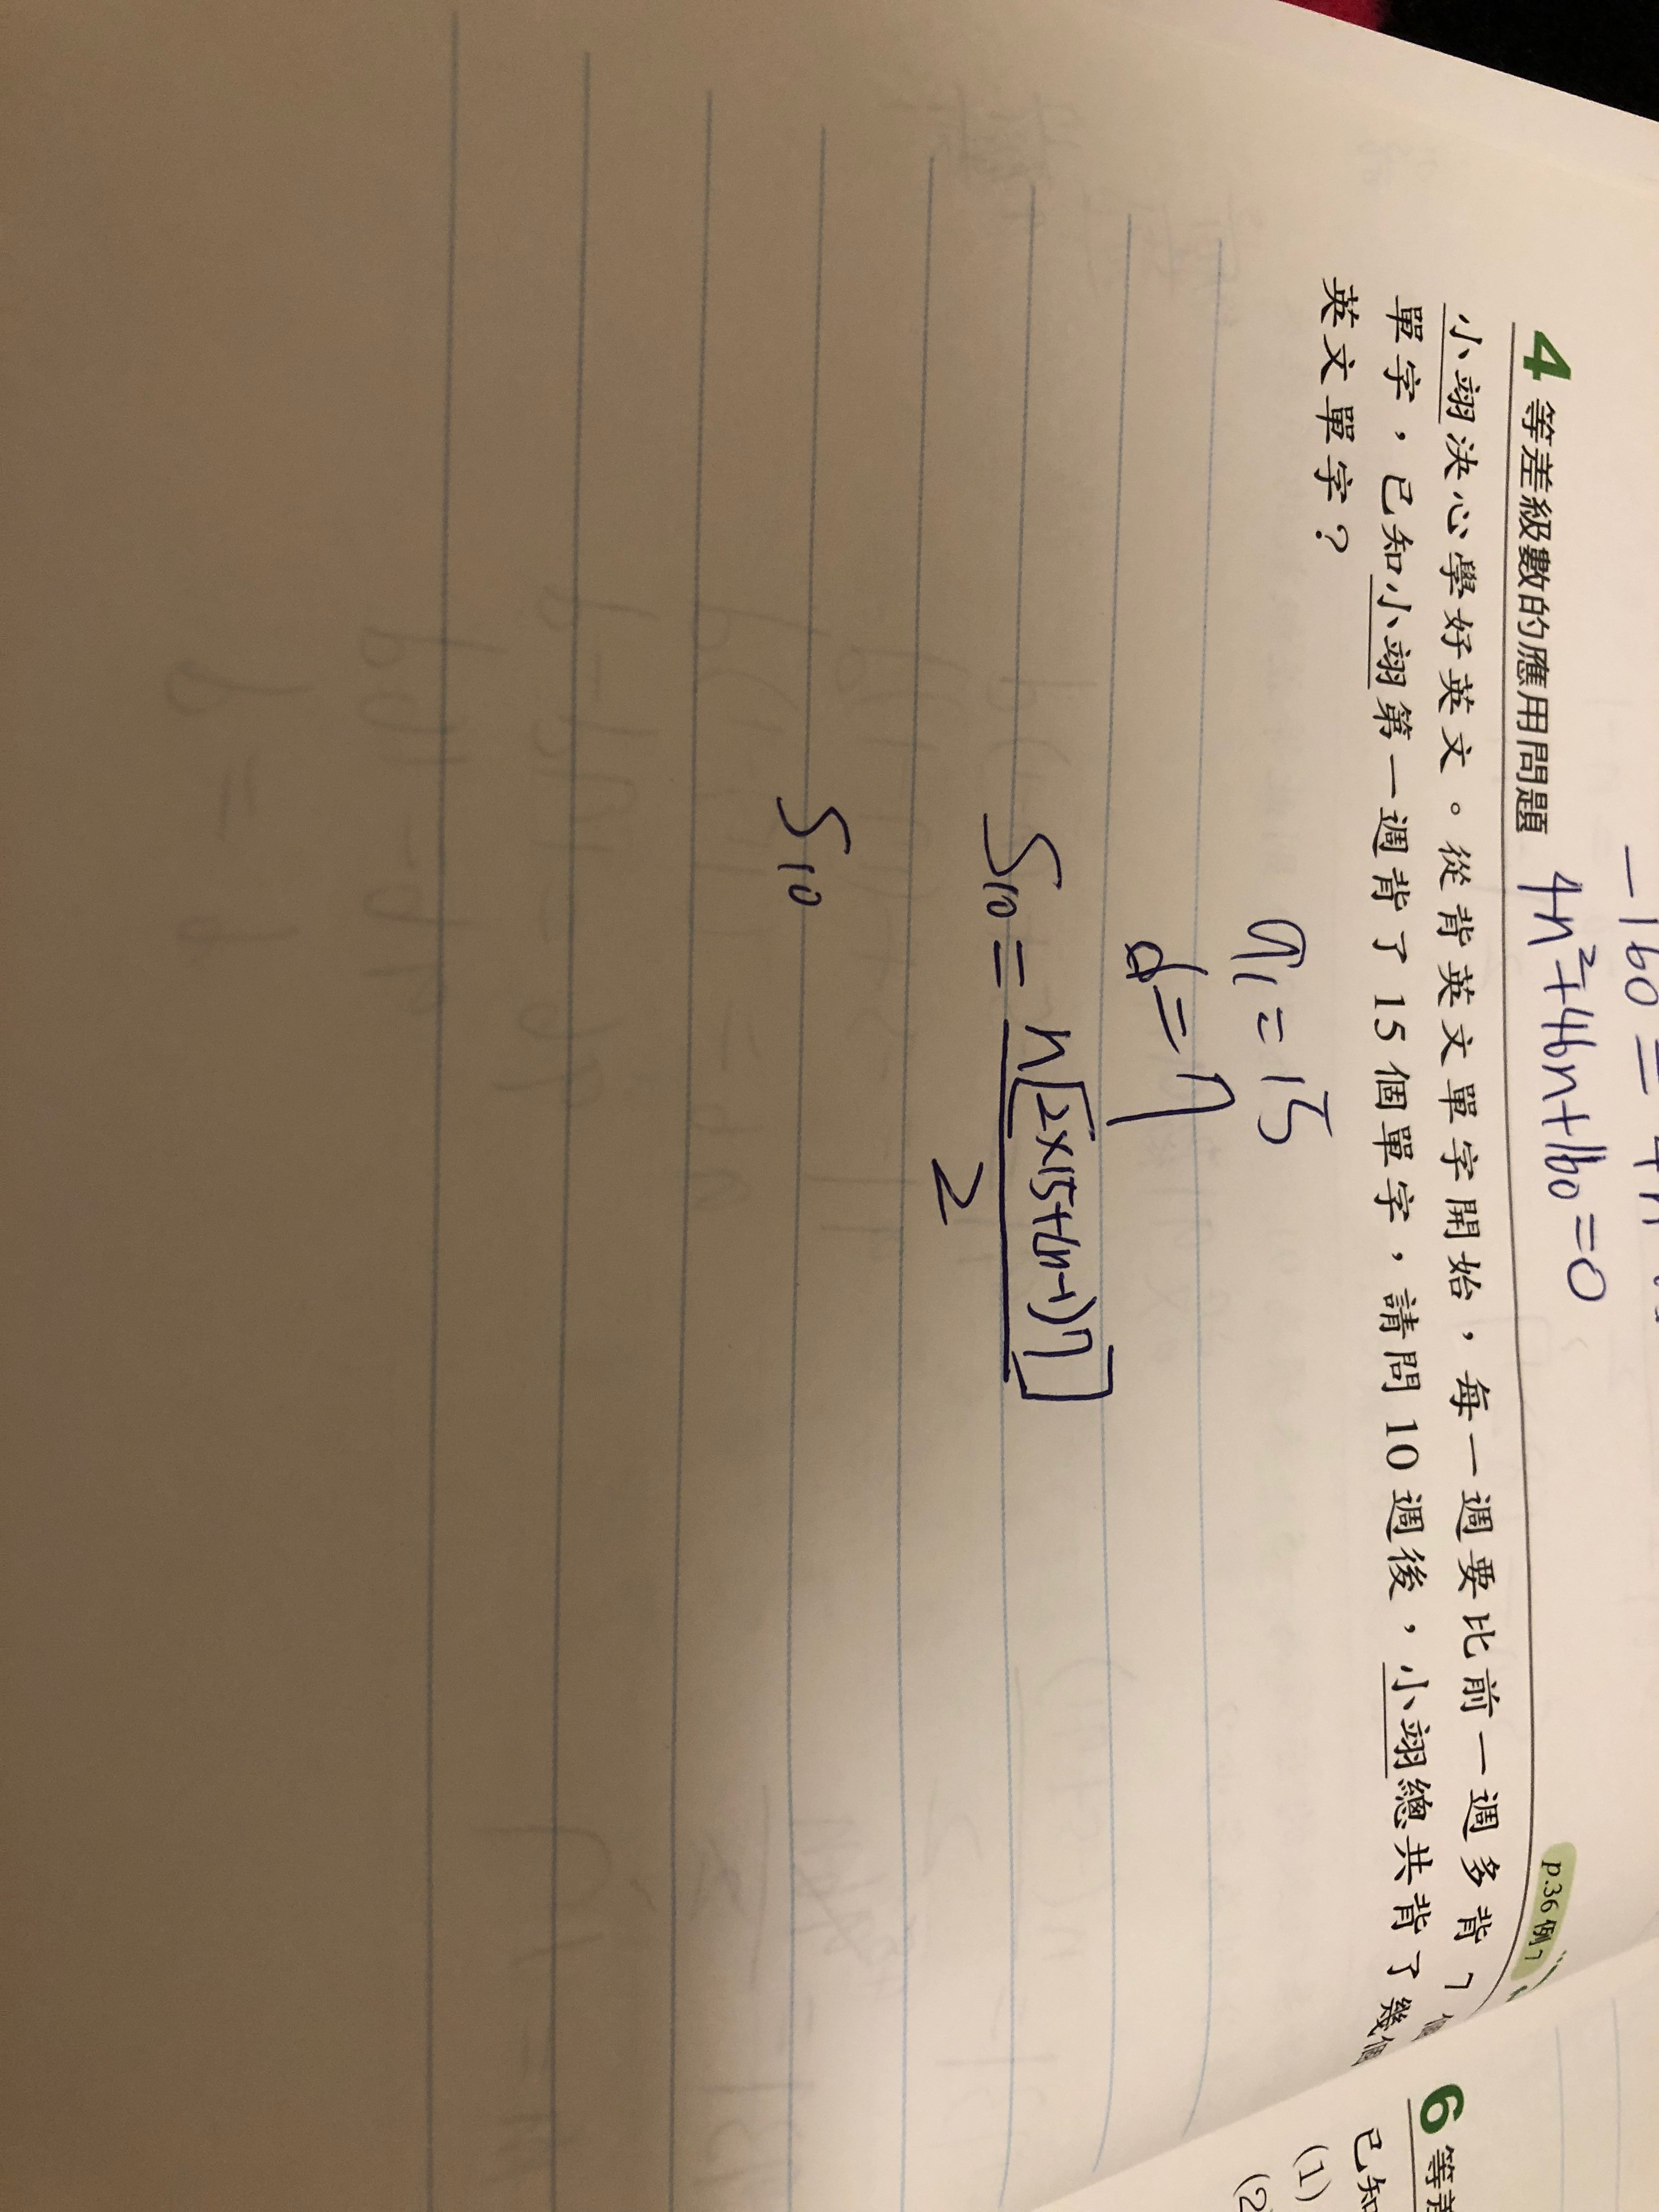 4n²+46n+160=0
4 等差級數的應用問題
p.36 例7
小翊決心學好英文。從背英文單字開始，每一週要比前一週多背 7 個
單字，已知小翊第一週背了 15 個單字，請問 10 週後，小翊總共背了幾個
英文單字？
a₁=15
d=7
S₁₀=n[2×15+(n-1)7]
2
S₁₀
6 等
已知
(1)
(2